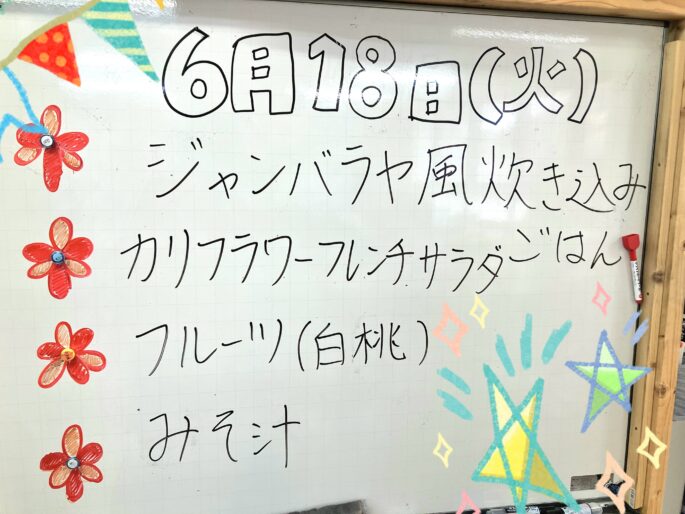 6月18日(火)
ジャンバラヤ風炊き込み
ごはん
カリフラワーフレンチサラダ
フルーツ(白桃)
みそ汁